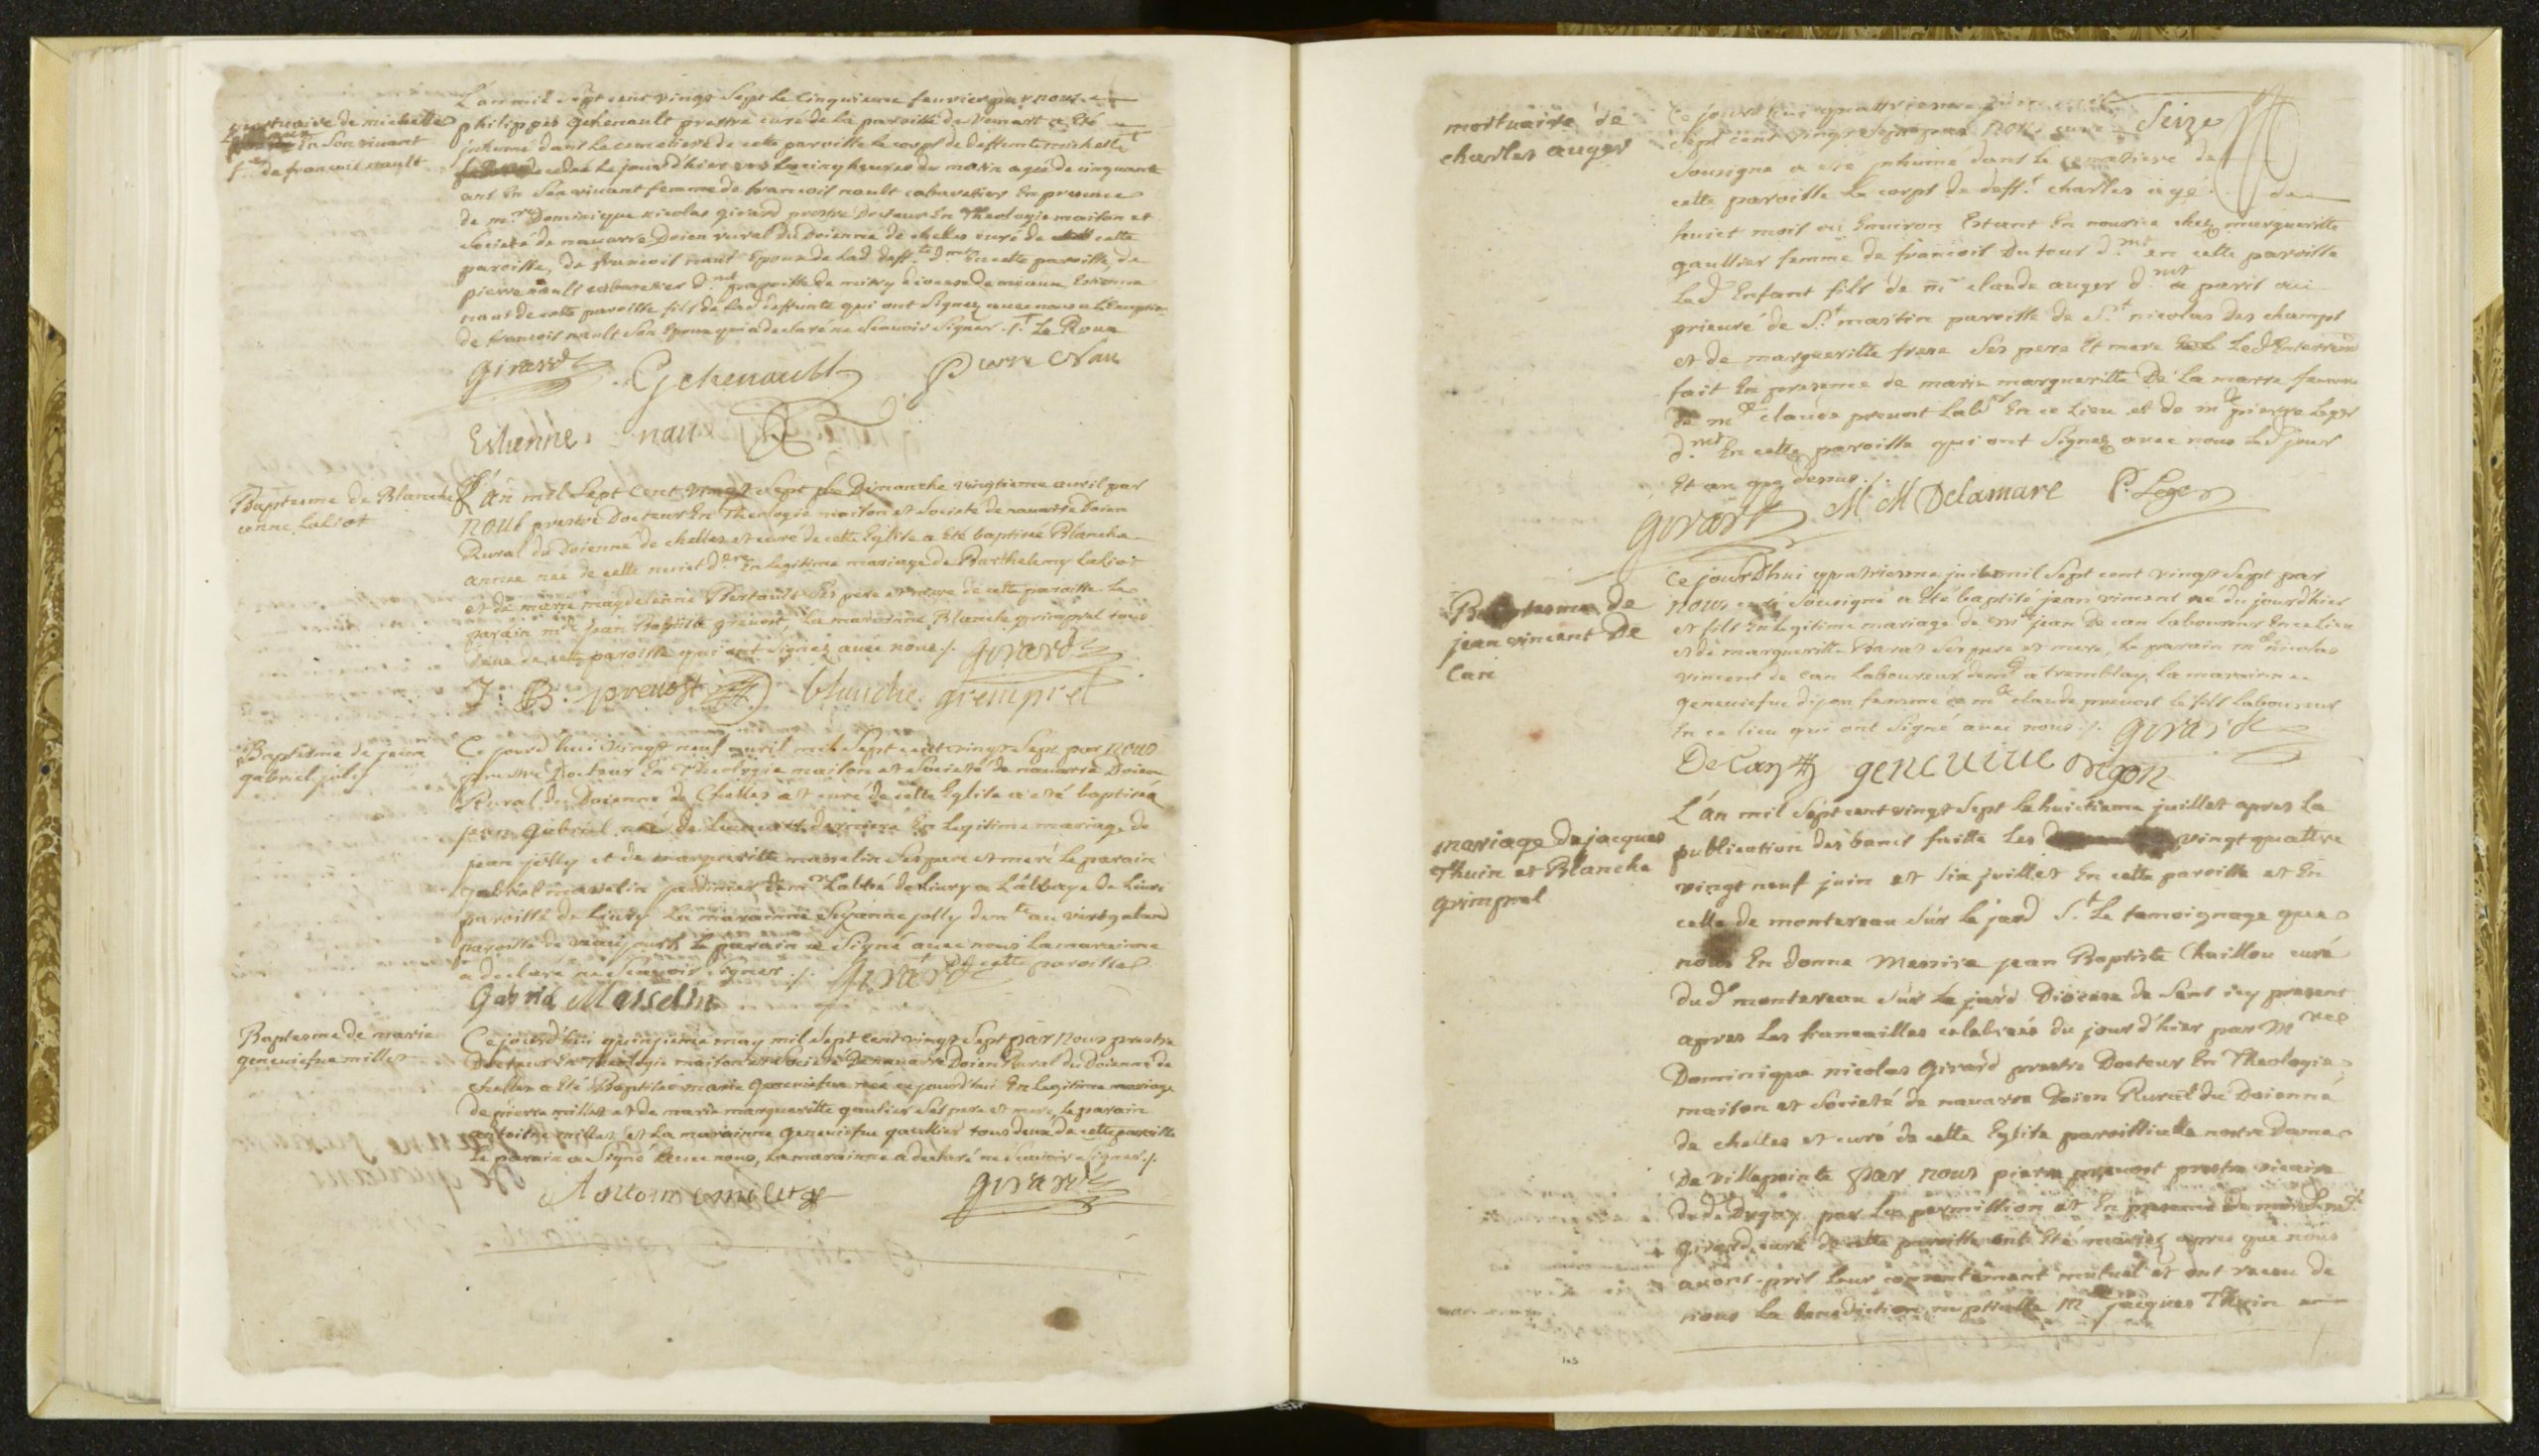 L'an mil sept cent vingt sept le cinquieme feuvrier par nous
mortuaire de michelle
en son vivant
f.e de francois nault
philippes Gehenault prestre curé de la paroisse de Vemart a été
inhumé dans le cemetiere de cette paroisse le corps de deffunte michelle
decedée le jourd'hier sur les cinq heures du matin agée de cinquante
ans En son vivant femme de francois nault cabaretier En presence
de m.re Dominique nicolas girard prestre Docteur En Theologie maison et
Societé de navarre Doien rural du Doienné de chelles curé de cette
paroisse, de francois naut Epoux de lad. deff.te d.mt En cette paroisse, de
pierre nault cabaretier d.mt paroisse de mitry diocese de meaux, Estienne
naut de cette paroisse fils de lad deffunte qui ont signez avec nous a l'Exception
de francois nault son Epoux qui a declaré ne scauoir signer ./. Le Roux
Girard Gehenault Pierre Nau
Estienne nau
Baptesme de Blanche
anne Laliot
L'an mil sept cent vingt sept le Dimanche vingtieme avril par
nous prestre Docteur En Theologie maison et Societé de navarre Doien
Rural du Doienné de chelles et curé de cette Eglise a été baptisée Blanche
annee née de cette nuict d.ere En legitime mariage de Barthelemy Laliot
et de marie magdeleinne Bertault ses pere et mere de cette paroisse. Le
parain m.re Jean Baptiste prevost, La marainne Blanche grimprel tous
deux de cette paroisse qui ont signez avec nous ./. Girard
J. B. prevost blanche gremprel
Baptesme de jean
gabriel joly
Ce jourd'hui vingt neuf avril mil sept cent vingt sept par nous
prestre Docteur En Theologie maison et Societé de navarre Doien
Rural du Doienné de Chelles et curé de cette Eglise a eté baptisée
jean Gabriel né de la nuict derniere En legitime mariage de
jean jolly et de marguerite masselin ses pere et mere le parain
gabriel masselin jardinier de m.r L'abbé de Livry a L'abbaye de Livri
paroisse de Livry La marainne Suzanne jolly dem.te au vertgaland
paroisse de vaujourt le parain a signé avec nous La marainne
a declaré ne scauoir signer ./. Girard de cette paroisse
Gabriel Masselin
Baptesme de marie
geneuiefue millet
Ce jourd'hui quinzieme may mil sept cent vingt sept par nous prestre
Docteur En Theologie maison et Societé de navarre Doien Rural du Doienné de
chelles a Eté Baptisée marie Geneuiefue née ce jourd'hui En legitime mariage
de pierre millet et de marie marguerite gaultier ses pere et mere, le parain
antoine millet et La marainne Geneuiefue gaultier tous deux de cette paroisse
Le parain a signé avec nous, La marainne a declaré ne scauoir signer ./.
Antoine milet Girard
mortuaire de
charles auger
Ce jourd'hui quatrieme juin mil
sept cent vingt sept par nous curé Seize
sousigné a eté inhumé dans le cemetiere de
cette paroisse le corps de deff.t charles agé de
huict mois ou Enuiron Estant En nourice chez marguerite
gaultier femme de francois Dutour d.mt en cette paroisse
Led Enfant fils de m.r claude auger d.mt a paris au
prieuré de S.t martin paroisse de S.t nicolas des champs
et de marguerite frere ses pere Et mere Led Enterrem.t
fait En presence de marie marguerite De La marre femme
de m.e claude prevost Lab.r En ce Lieu et de m.e pierre Leger
d.mt En cette paroisse qui ont signez avec nous Led jour
Et an que dessus ./.
Girard M. M Delamare P. Leger
Baptesme de
jean vincent De
Can
Ce jourd'hui quatrieme juin mil sept cent vingt sept par
nous curé sousigné a eté baptisé jean vincent né du jourd'hier
et fils En legitime mariage de m.e jean De can laboureur En ce Lieu
et de marguerite Barat ses pere et mere, Le parain m.e nicolas
vincent de can Laboureur dem.t a tremblay, La marainne
geneuiefue dijon femme de m.e claude prevost le fils laboureur
En ce lieu qui ont signé avec nous ./. Girard
Decan geneuiue digon
mariage de jacques
Thuin et Blanche
grimprel
L'an mil sept cent vingt sept le huictieme juillet apres la
publication des bancs faitte les vingt quattre
vingt neuf juin et six juillet En cette paroisse et En
celle de montereau sur le jard S.t Le temoignage que
nous En donne Messire jean Baptiste Chaillou curé
dud montereau sur le jard Diocese de Sens icy present
apres les fiancailles celebrées du jour d'hier par m.re
Dominique nicolas Girard prestre Docteur En Theologie
maison et Societé de navarre Doien Rural du Doienné
de chelles et curé de cette Eglise paroissielle nostre Dame
De villepinte par nous pierre prevost prestre vicaire
par la permission et En presence
girard curé de cette paroisse ont Eté mariez apres que nous
avons pris leur consentement mutuel et ont receu de
nous la benediction nuptialle m.e jacques Thuin